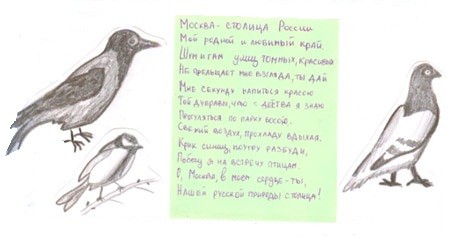 Москва - столица России
Мой родной и любимый край.
Шум и гам улиц томных, красивых
Не прельщает мне взгляда, ты дай
Мне секунду напиться красою
Той дубравы, что с детства я знаю
Прогуляться по парку весной,
Свежий воздух, прохладу вдыхая.
Крик синиц, поутру разбуди,
Побегу я на встречу птицам.
О, Москва, в моем сердце - ты,
Нашей русской природы столица!